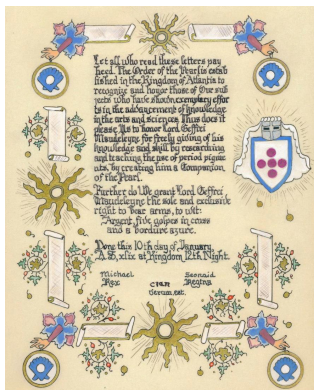 Let all who read these letters pay
heed. The Order of the Pearl is estab
lished in the Kingdom of Atlantis to
recognize and honor those of Our sub
jects who have shown exemplary effor
ts in the advancement of knowledge
in the arts and sciences. Thus does it
please Us to honor Lord Geffrei
Maudeleyne for freely giving of his
knowledge and skill by researching
and teaching the use of period pigme
nts, by creating him a Companion
of the Pearl.
Further do We grant Lord Geffrei
Maudeleyne the sole and exclusive
right to bear arms, to wit:
Argent, five golpes in cross
and a bordure azure.
Done this 10th day of January,
A.S. xlix at Kingdom 12th Night.
Michael
Rex
Seonaid
Regina
verum est.